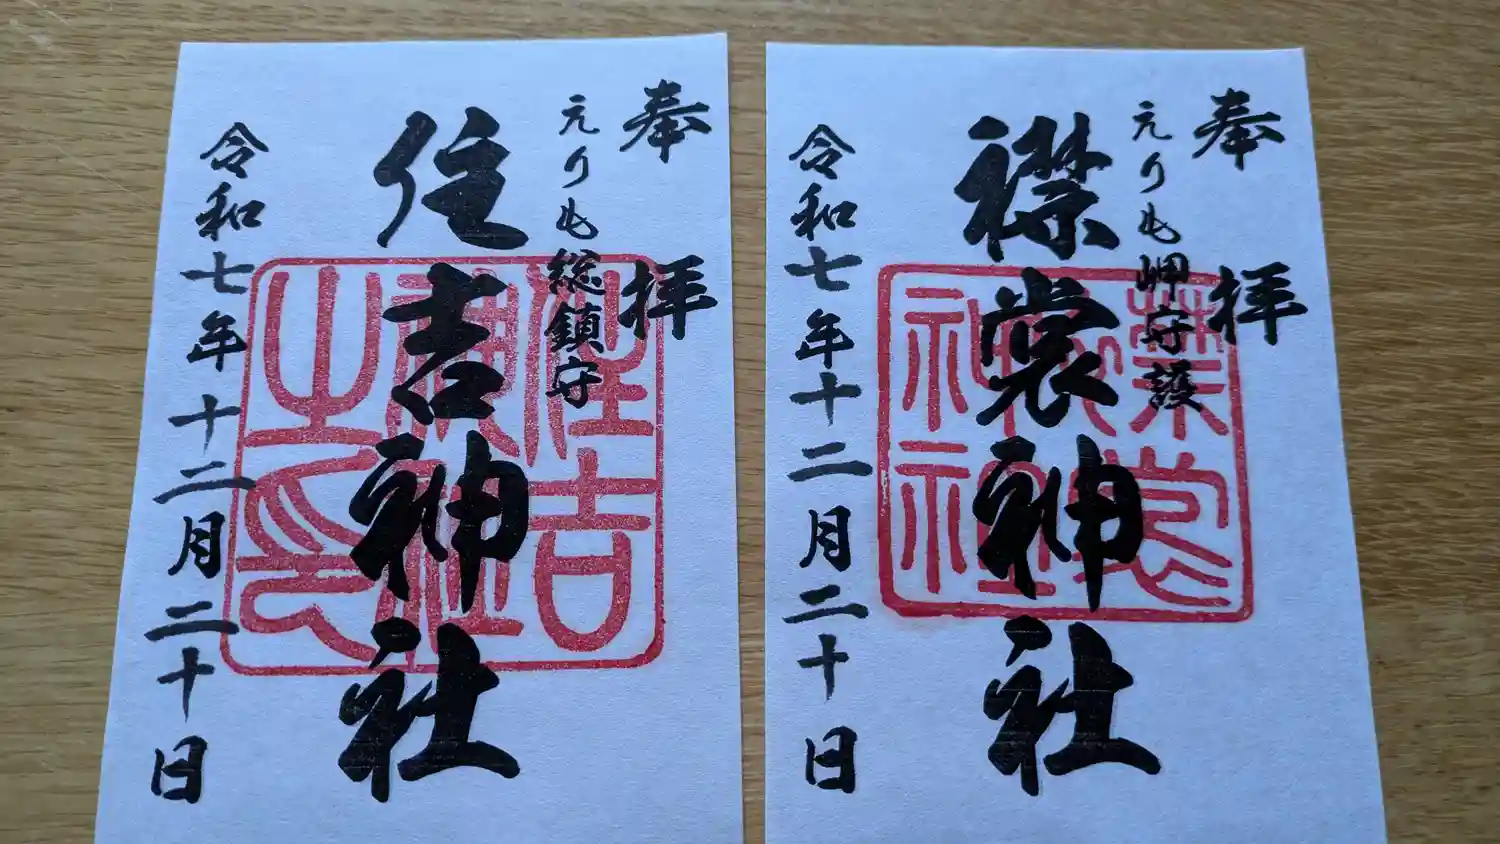 奉拝
えりも岬守護
襟裳神社
令和七年十二月二十日
奉拝
えりも総鎮守
住吉神社
令和七年十二月二十日
住吉
神社
之印
神社